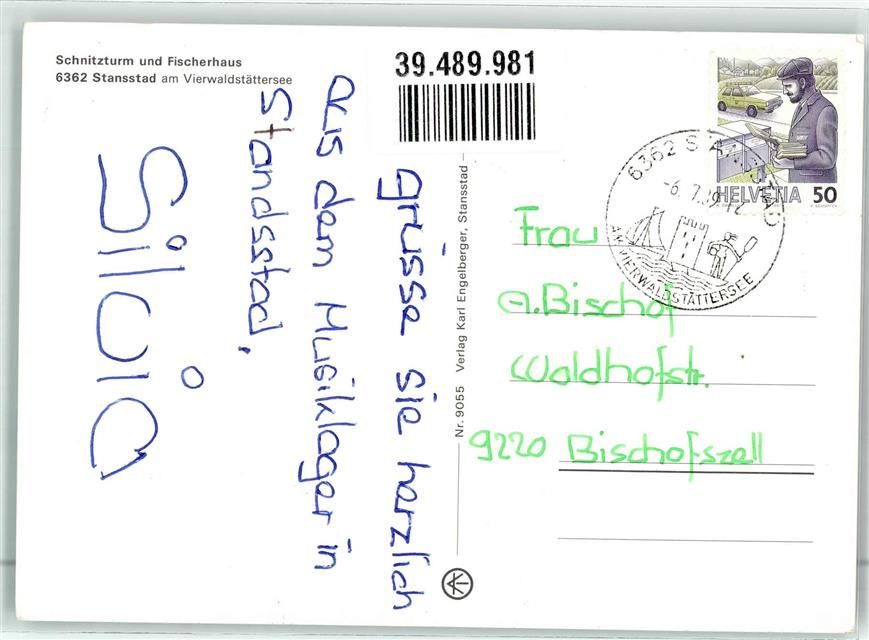 Schnitzturm und Fischerhaus
6362 Stansstad am Vierwaldstättersee
39.489.981
grüsse sie harzlich
aus dem Musiklager in
Standsstad,
Silvio
Nr. 9055 Verlag Karl Engelberger, Stansstad
HELVETIA 50
6362 STANSSTAD
-6.7.
AM VIERWALDSTÄTTERSEE
Frau
A. Bischof
Waldhofstr.
9220 Bischofszell